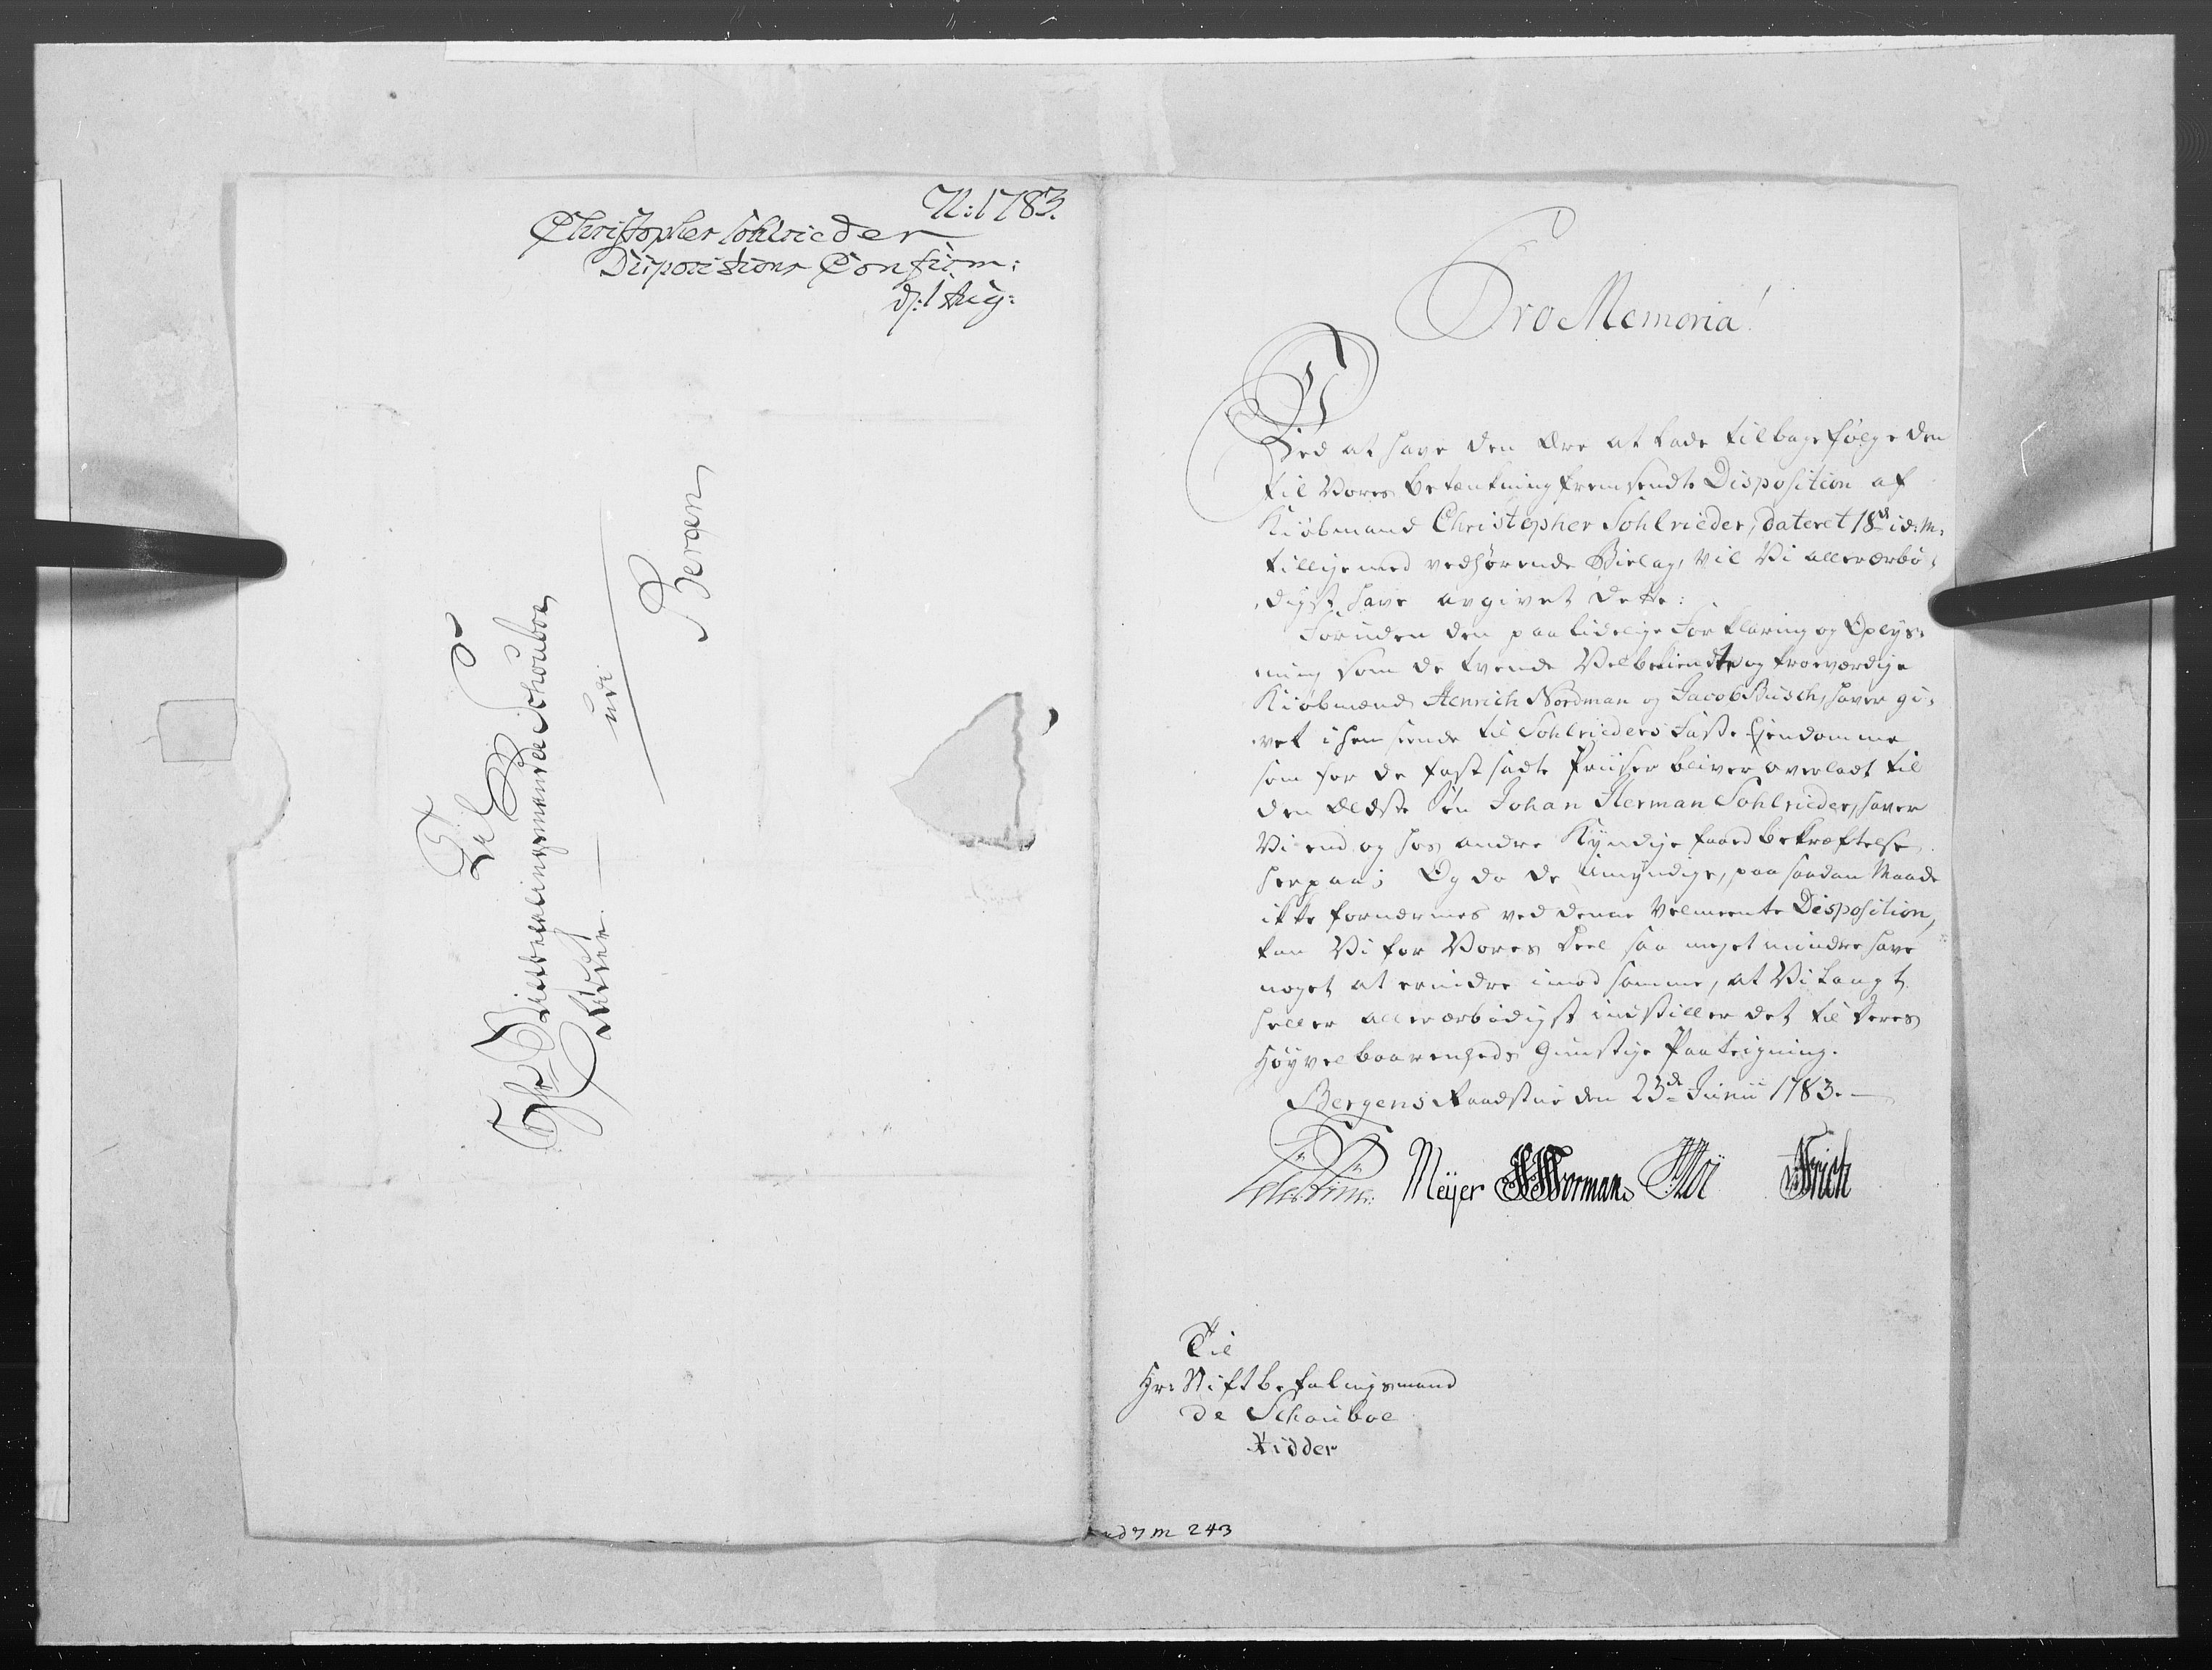 N: 1783.
Christopher Sohlrieder
Dispositions Confirm:
d: 1 Aug:
Til
Hr Stiftbefalingsmand de Schouboe
Ridder
udi
Bergen
Pro Memoria!
Ved at have den Ære at lade tilbagefølge den
til Vores betænkning fremsendte Disposition af
Kiøbmand Christopher Sohlrieder, dateret 18de id: M:
tilligemed vedhørende Bielag, vil Vi allerærbø-
digst have avgivet dette:
Foruden den paalidelige Forklaring og Oplys-
ning som de tvende Velbekiendte og troeværdige
Kiøbmænd Henrich Nordman og Jacob Busch, haver gi-
vet i henseende til Sohlrieders Faste Ejendomme
som for de fastsadte Priiser bliver overladt til
den Ældste Søn Johan Herman Sohlrieder, haver
Vi end og hos andre Kyndige faaed bekræftelse
herpaa; Og da de Umyndige, paa saadan Maade
ikke fornærmes ved denne Velmeente Disposition,
kan Vi for Vores Deel saa meget mindre have
noget at erindre imod samme, at Vi langt
heller allerærbødigst indstiller det til Deres
Høyvelbaarenheds Gunstige Paategning.
Bergens Raadstue den 23de Junii 1783.
Meyer Norman Frich
Til
Hr: Stiftbefalingsmand
de Schouboe
Ridder
243